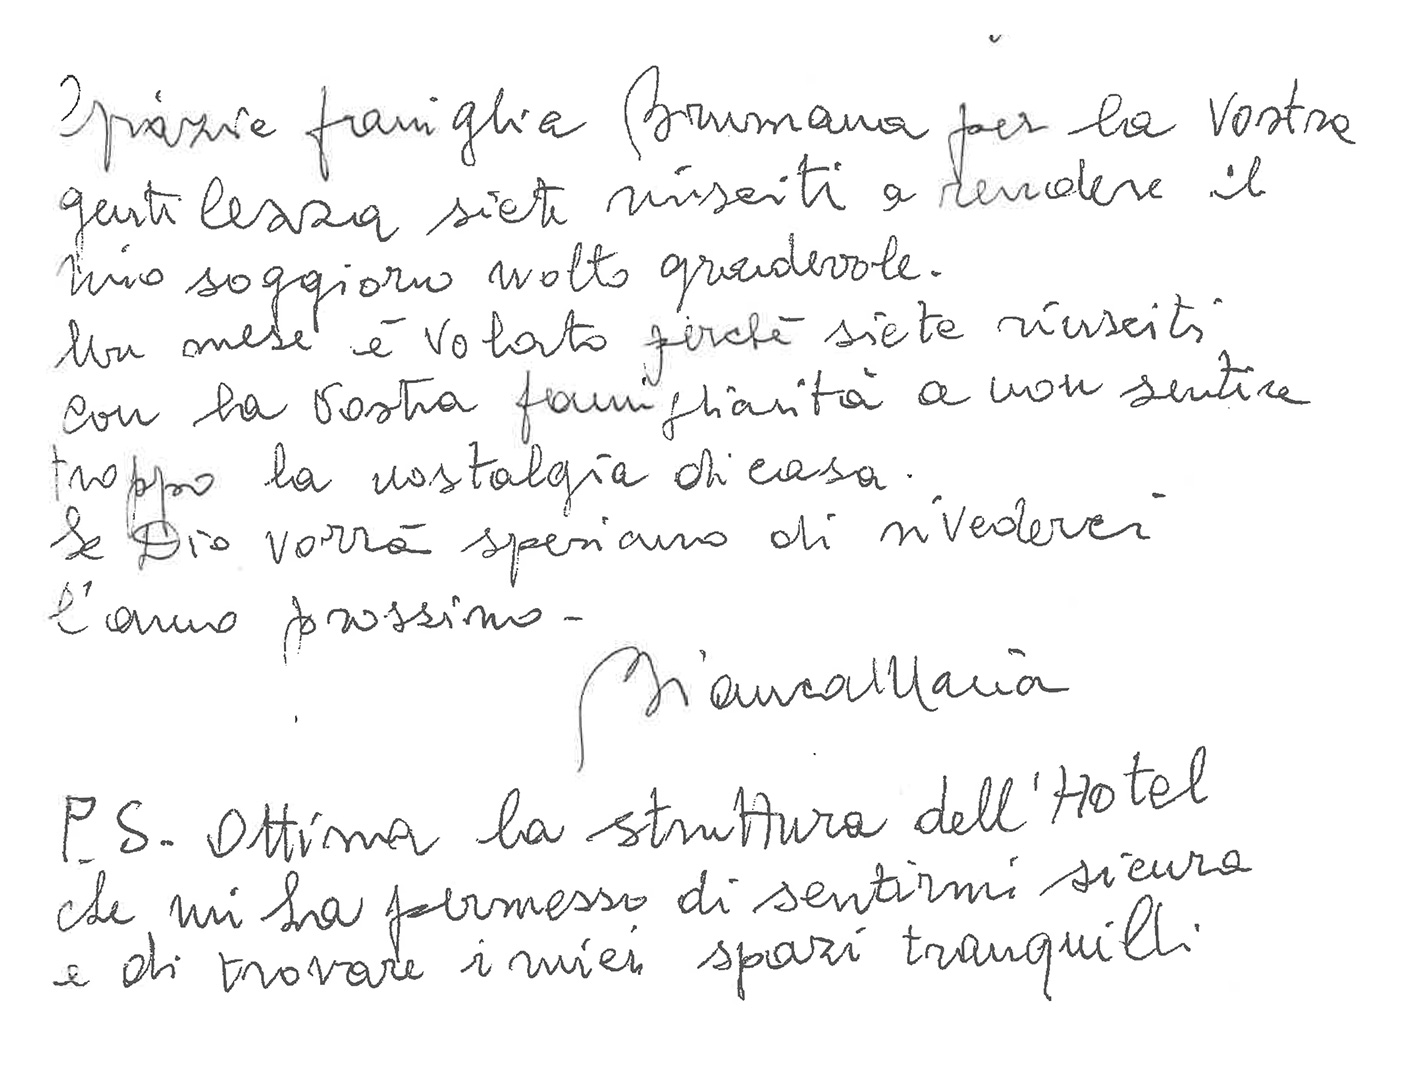 Grazie famiglia Brumana per la Vostra
gentilezza siete riusciti a rendere il
mio soggiorno molto gradevole.
Un mese è volato perchè siete riusciti
con la Vostra famigliarità a non sentire
troppo la nostalgia di casa.
Se Dio vorrà speriamo di rivederci
l'anno prossimo -
BiancaMaria
P.S. Ottima la struttura dell'Hotel
che mi ha permesso di sentirmi sicura
e di trovare i miei spazi tranquilli